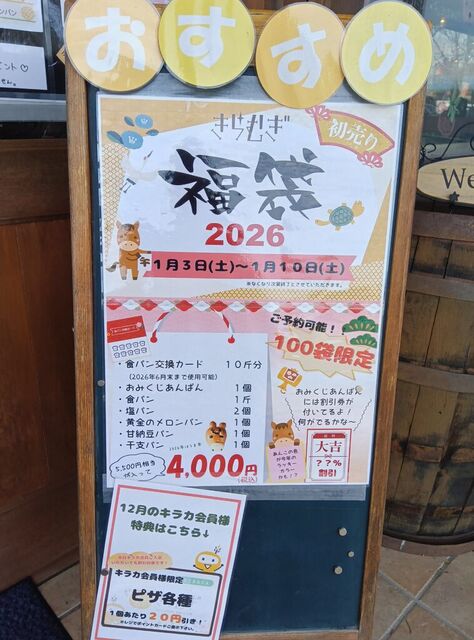 おすすめ
きらむぎ
初売り
福袋
2026
1月3日(土)~1月10日(土)
※なくなり次第終了とさせていただきます。
ご予約可能!
100袋限定
・食パン交換カード 10斤分
(2026年6月末まで使用可能)
・おみくじあんぱん 1個
・食パン 1斤
・塩パン 2個
・黄金のメロンパン 1個
・甘納豆パン 1個
・干支パン 1個
5,500円相当
が入って
4,000円
(税込)
おみくじあんぱん
には割引券が
付いてるよ!
何がでるかな~
あんこの色
が今年の
ラッキー
カラー
かも!?
大吉
??%
割引
12月のキラカ会員様
特典はこちら↓
キラカ会員様限定
ピザ各種
1個あたり20円引き!
We